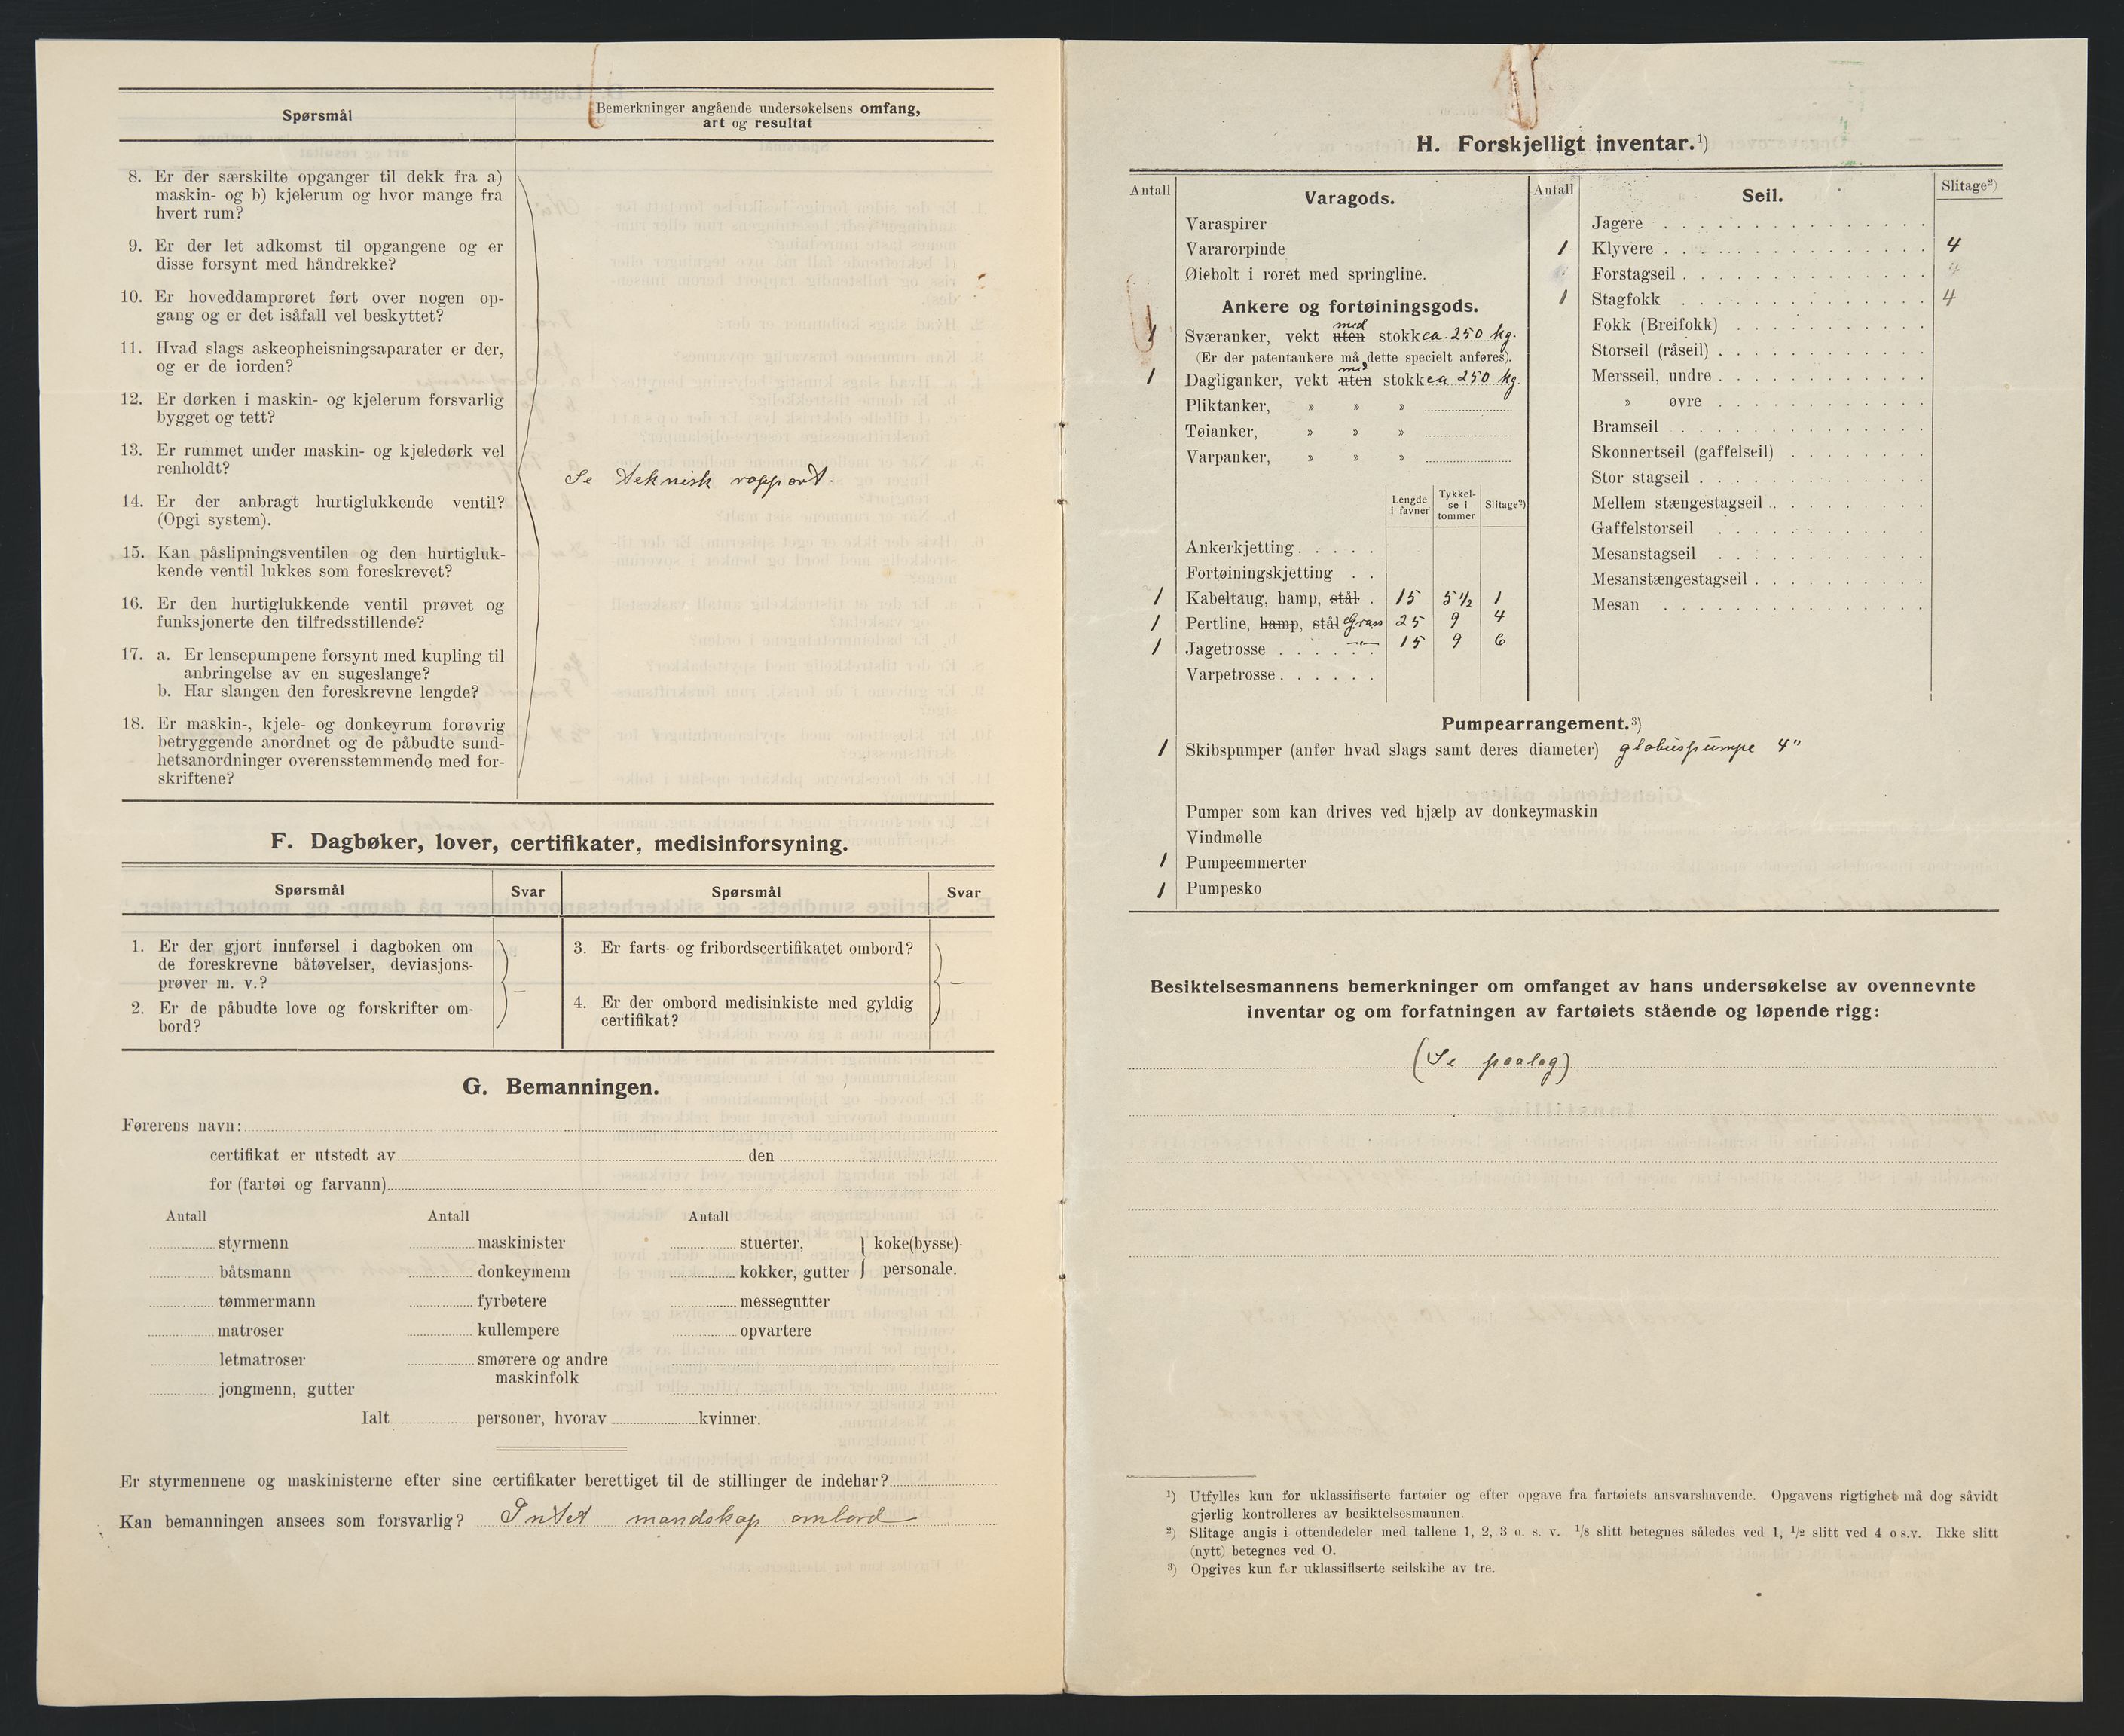 Spørsmål
Bemerkninger angående undersøkelsens omfang,
art og resultat
8. Er der særskilte opganger til dekk fra a)
maskin- og b) kjelerum og hvor mange fra
hvert rum?
9. Er der let adkomst til opgangene og er
disse forsynt med håndrekke?
10. Er hoveddamprøret ført over nogen op-
gang og er det isåfall vel beskyttet?
11. Hvad slags askeopheisningsaparater er der,
og er de iorden?
12. Er dørken i maskin- og kjelerum forsvarlig
bygget og tett?
13. Er rummet under maskin- og kjeledørk vel
renholdt?
14. Er der anbragt hurtiglukkende ventil?
(Opgi system).
15. Kan påslipningsventilen og den hurtigluk-
kende ventil lukkes som foreskrevet?
16. Er den hurtiglukkende ventil prøvet og
funksjonerte den tilfredsstillende?
17. a. Er lensepumpene forsynt med kupling til
anbringelse av en sugeslange?
b. Har slangen den foreskrevne lengde?
18. Er maskin-, kjele- og donkeyrum forøvrig
betryggende anordnet og de påbudte sund-
hetsanordninger overensstemmende med for-
skriftene?
Se teknisk rapport.
F. Dagbøker, lover, certifikater, medisinforsyning.
Spørsmål Svar Spørsmål Svar
1. Er der gjort innførsel i dagboken om
de foreskrevne båtøvelser, deviasjons-
prøver m. v.?
2. Er de påbudte love og forskrifter om-
bord?
—
3. Er farts- og fribordscertifikatet ombord?
4. Er der ombord medisinkiste med gyldig
certifikat?
—
G. Bemanningen.
Førerens navn:
certifikat er utstedt av den
for (fartøi og farvann)
Antall Antall Antall
styrmenn maskinister stuerter, koke(bysse)-
båtsmann donkeymenn kokker, gutter personale.
tømmermann fyrbøtere messegutter
matroser kullempere opvartere
letmatroser smørere og andre
maskinfolk
jongmenn, gutter
Ialt personer, hvorav kvinner.
Er styrmennene og maskinisterne efter sine certifikater berettiget til de stillinger de indehar?
Kan bemanningen ansees som forsvarlig? Intet mandskap ombord
H. Forskjelligt inventar.¹)
Antall Varagods.
Varaspirer
Vararorpinde
Øiebolt i roret med springline.
Ankere og fortøiningsgods.
med
1 Sværanker, vekt uten stokk ca. 250 kg.
(Er der patentankere må dette specielt anføres).
med
1 Dagliganker, vekt uten stokk ca 250 kg.
Pliktanker, » » »
Tøianker, » » »
Varpanker, » » »
Lengde i favner Tykkel-se i tommer Slitage²)
Ankerkjetting
Fortøiningskjetting
1 Kabeltaug, hamp, stål 15 5 1/2 1
1 Pertline, hamp, stål Grass 25 9 4
1 Jagetrosse —"— 15 9 6
Varpetrosse
Antall Seil. Slitage²)
Jagere
1 Klyvere 4
Forstagseil
1 Stagfokk 4
Fokk (Breifokk)
Storseil (råseil)
Mersseil, undre
» øvre
Bramseil
Skonnertseil (gaffelseil)
Stor stagseil
Mellem stængestagseil
Gaffelstorseil
Mesanstagseil
Mesanstængestagseil
Mesan
Pumpearrangement.³)
1 Skibspumper (anfør hvad slags samt deres diameter) globuspumpe 4"
Pumper som kan drives ved hjælp av donkeymaskin
Vindmølle
1 Pumpeemmerter
1 Pumpesko
Besiktelsesmannens bemerkninger om omfanget av hans undersøkelse av ovennevnte
inventar og om forfatningen av fartøiets stående og løpende rigg:
(Se paalag)
¹) Utfylles kun for uklassifiserte fartøier og efter opgave fra fartøiets ansvarshavende. Opgavens rigtighet må dog såvidt
gjørlig kontrolleres av besiktelsesmannen.
²) Slitage angis i ottendedeler med tallene 1, 2, 3 o. s. v. 1/8 slitt betegnes således ved 1, 1/2 slitt ved 4 o s.v. Ikke slitt
(nytt) betegnes ved O.
³) Opgives kun for uklassifiserte seilskibe av tre.